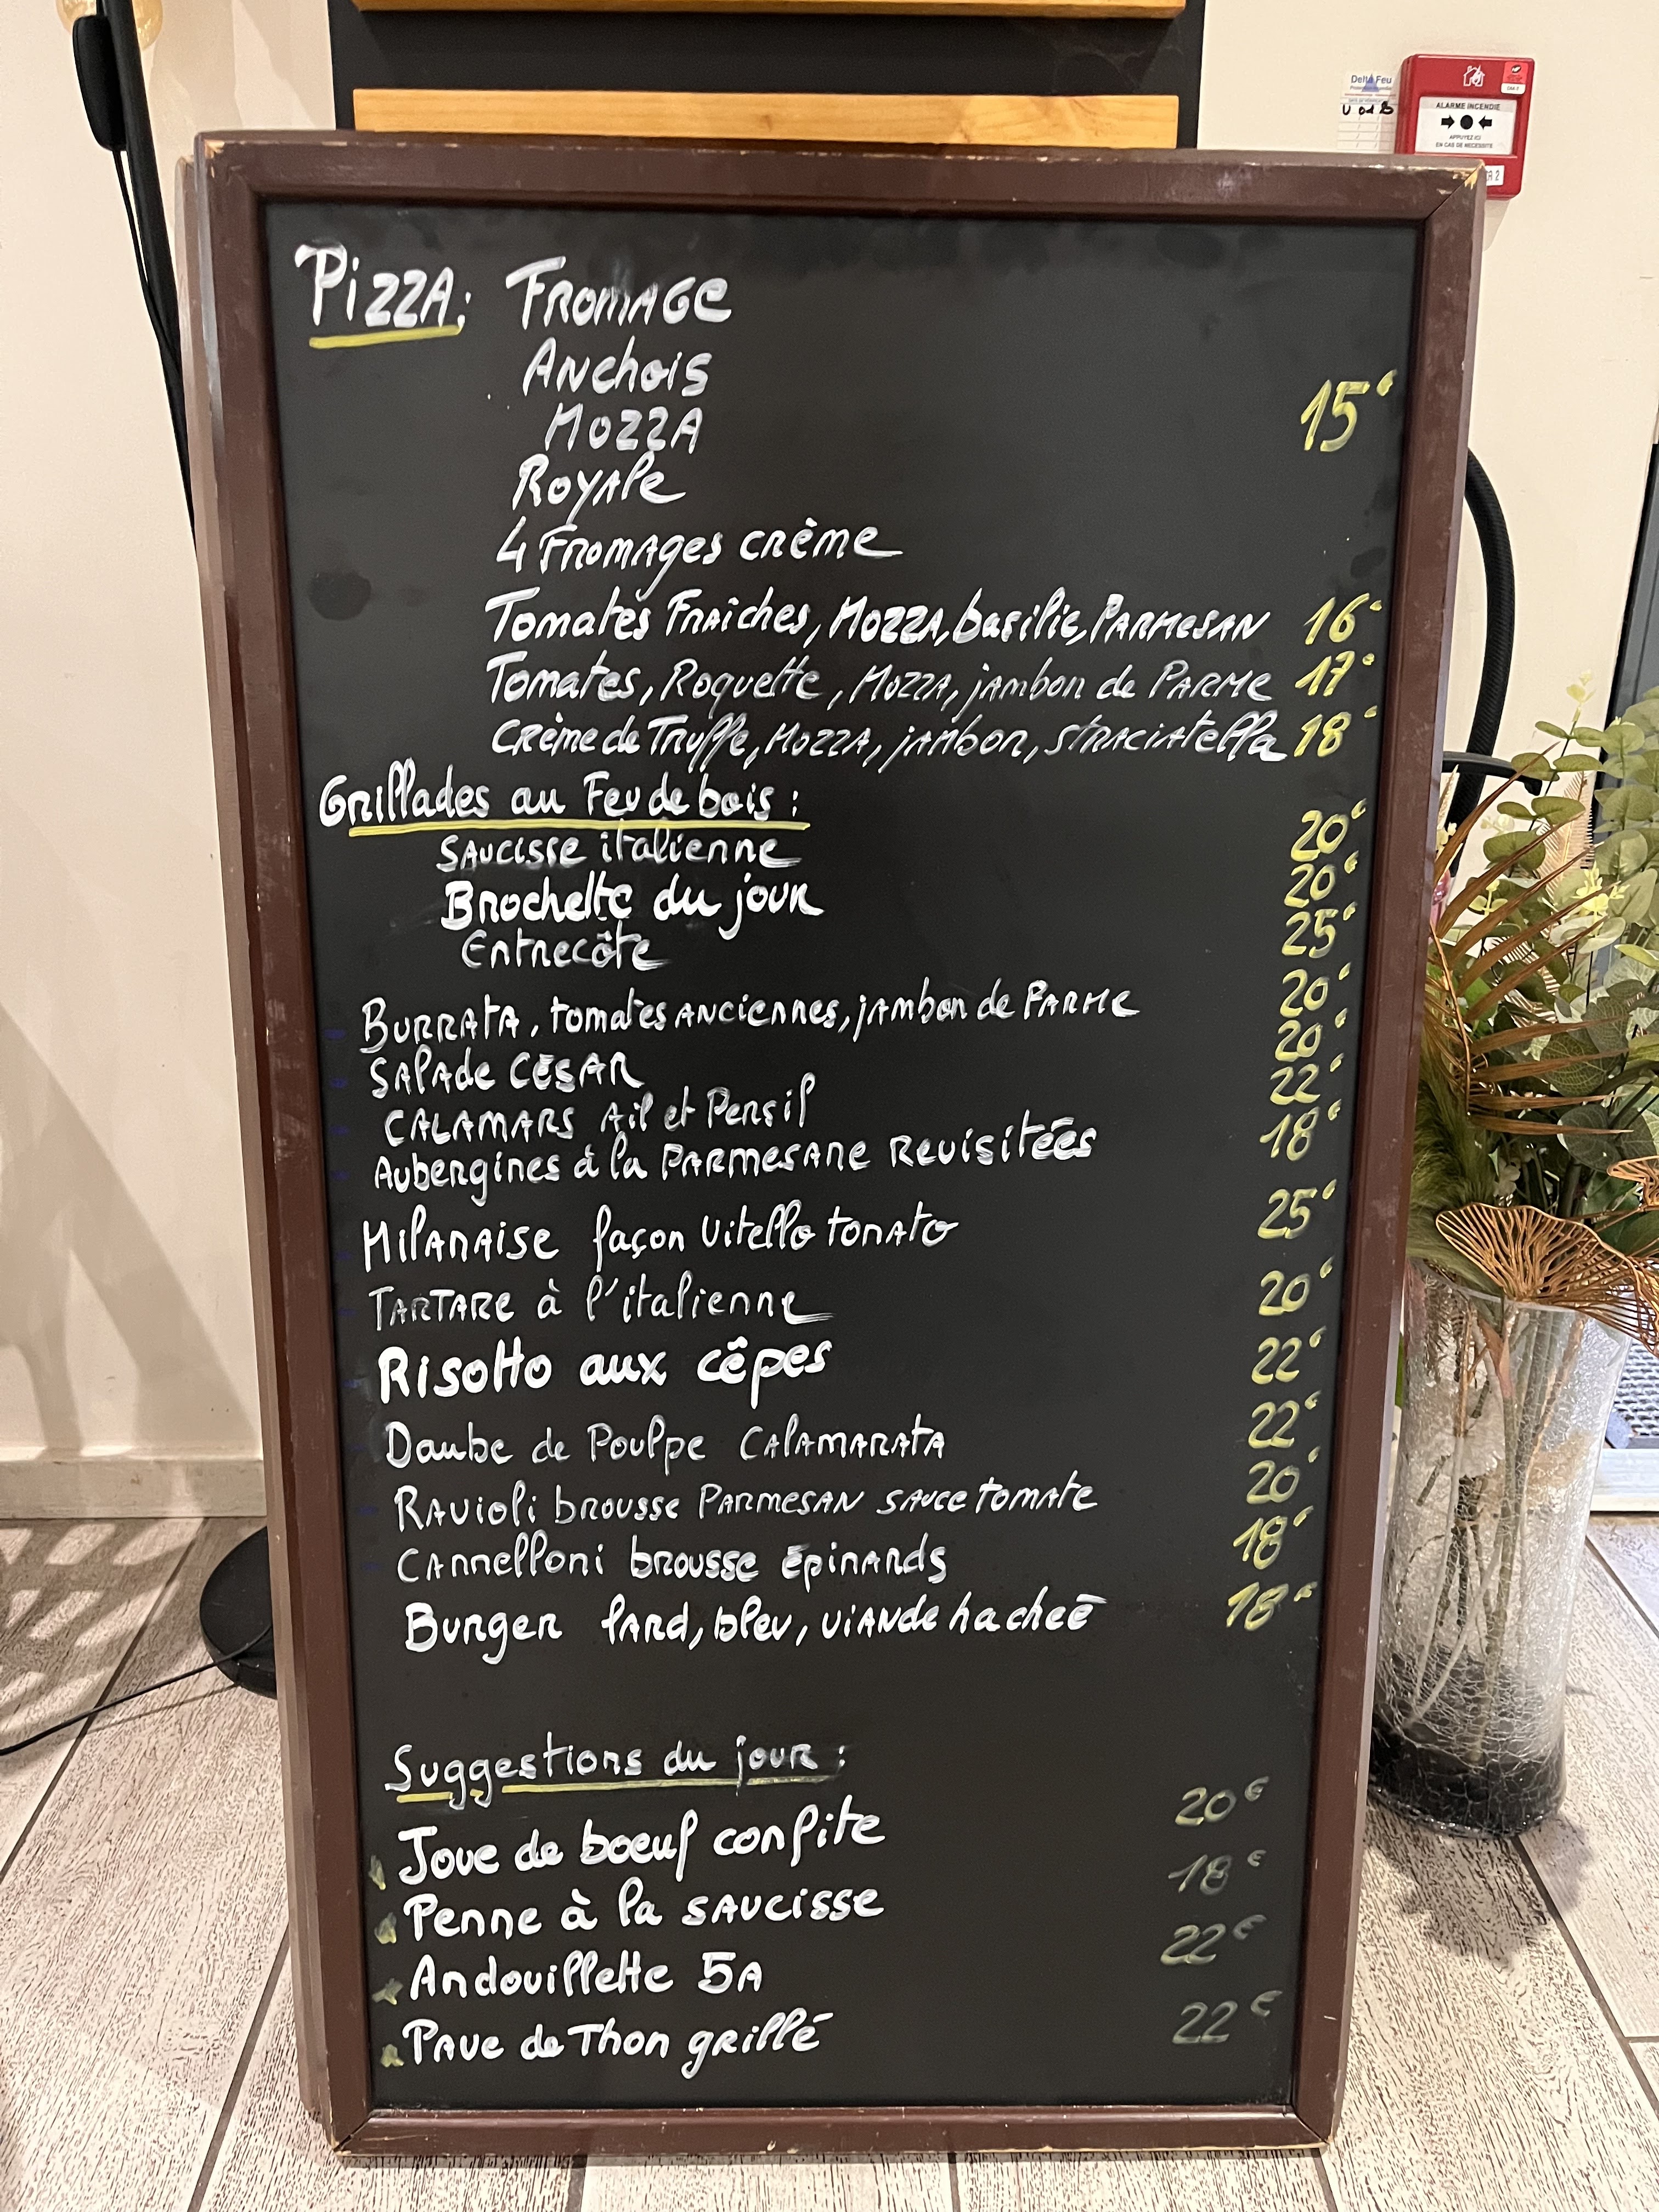 Delta Feu
U 01 B
ALARME INCENDIE
APPUYEZ ICI
EN CAS DE NECESSITE
Pizza: Fromage
Anchois
Mozza
15€
Royale
4 Fromages crème
Tomates Fraîches, Mozza, basilic, Parmesan 16€
Tomates, Roquette, Mozza, jambon de Parme 17€
Crème de Truffe, Mozza, jambon, straciatella 18€
Grillades au Feu de bois :
Saucisse italienne 20€
Brochette du jour 20€
Entrecôte 25€
Burrata, tomates anciennes, jambon de Parme 20€
Salade César 20€
Calamars Ail et Persil 22€
Aubergines à la Parmesane Revisitées 18€
Milanaise façon Vitello tonato 25€
Tartare à l'italienne 20€
Risotto aux cêpes 22€
Daube de Poulpe Calamarata 22€
Ravioli brousse Parmesan sauce tomate 20€
Cannelloni brousse épinards 18€
Burger lard, bleu, viande hacheé 18€
Suggestions du jour :
Joue de boeuf confite 20€
Penne à la saucisse 18€
Andouillette 5A 22€
Pave de Thon grillé 22€